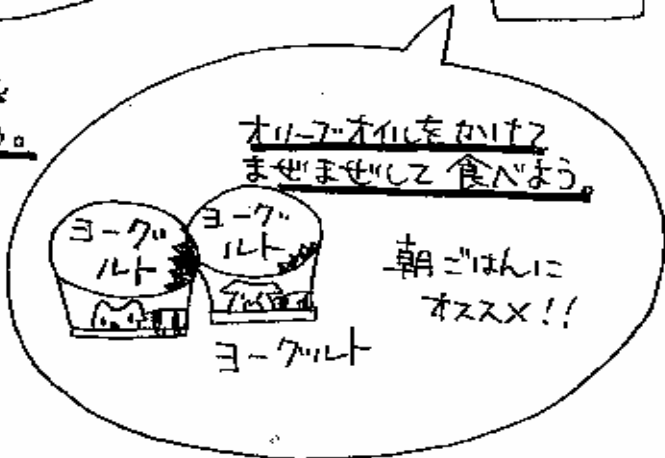 オリーブオイルをかけて
まぜまぜして食べよう。
ヨーグ
ルト
ヨーグ
ルト
朝ごはんに
オススメ!!
ヨーグルト